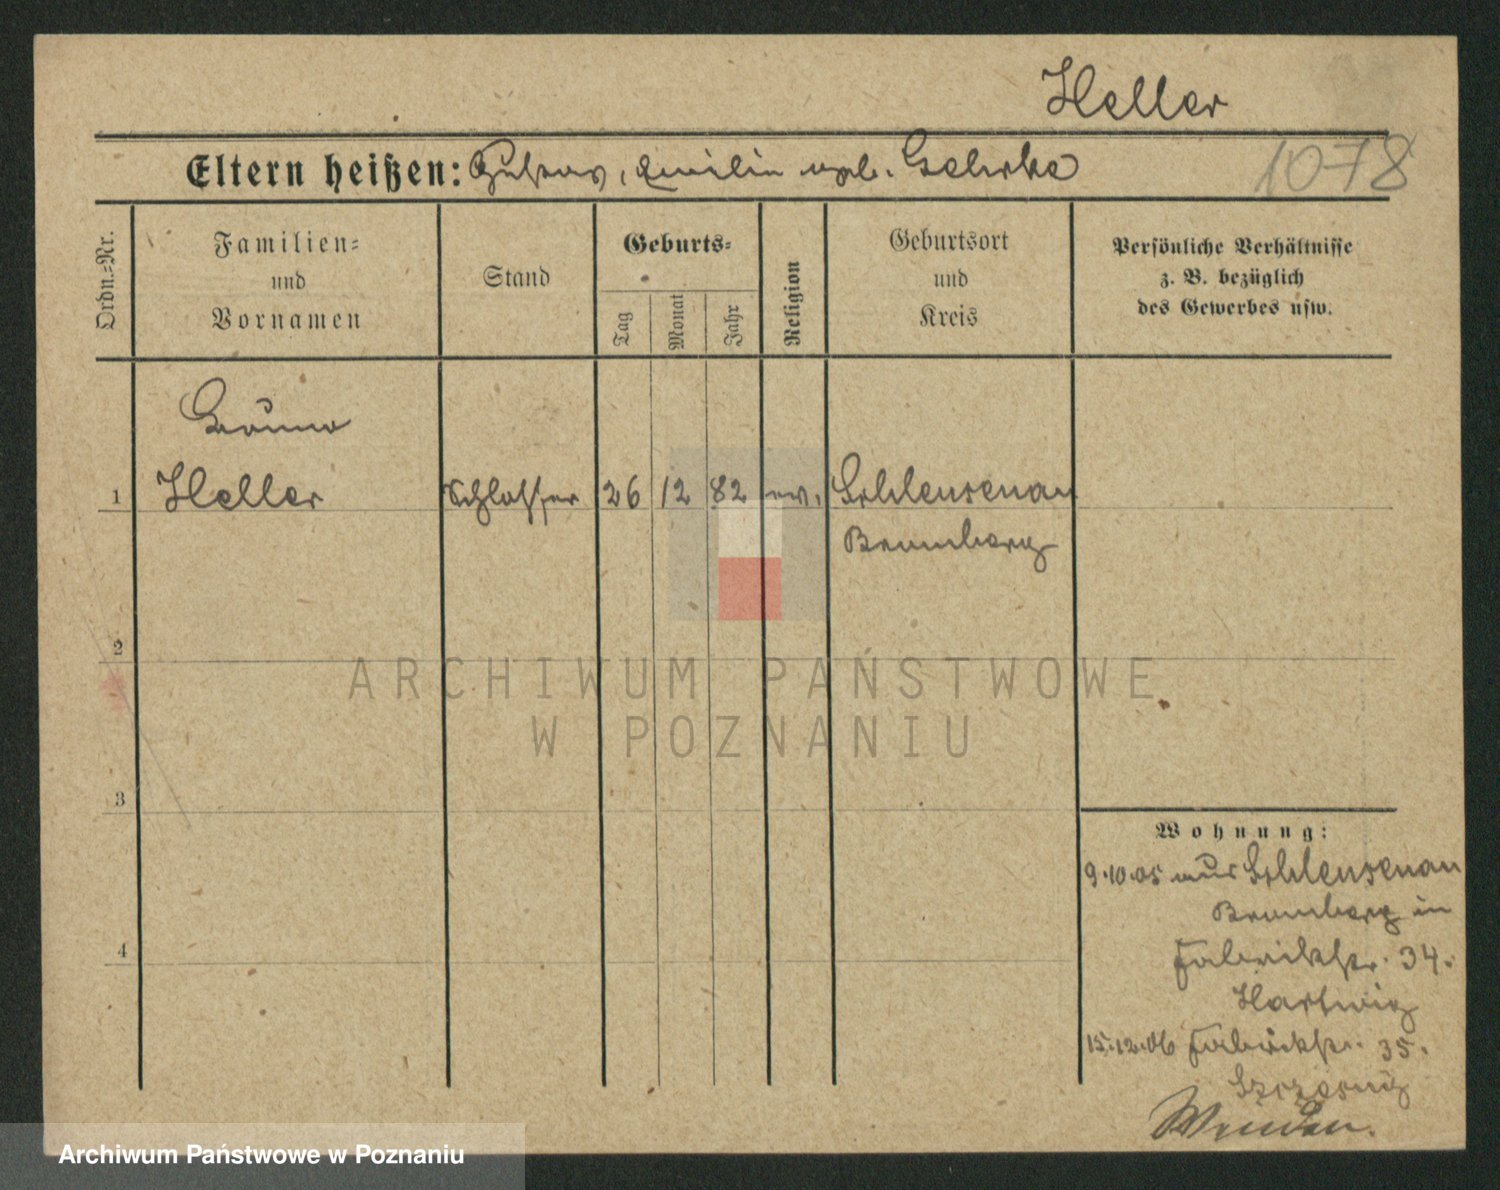 Heller
Eltern heißen: Gustav, Emilie geb. Gehrke
1078
Ordn.=Nr.
Familien=
und
Vornamen
Stand
Geburts=
Tag
Monat
Jahr
Religion
Geburtsort
und
Kreis
Persönliche Verhältnisse
z. B. bezüglich
des Gewerbes usw.
Bruno
1 Heller Schlosser 26 12 82 ev. Schleusenau
Bromberg
2
3
4
Wohnung:
9.10.05 aus Schleusenau
Bromberg in
Fabrikstr. 34.
Hartwig
15.12.06 Fabrikstr. 35.
ARCHIWUM PAŃSTWOWE
W POZNANIU
Archiwum Państwowe w Poznaniu